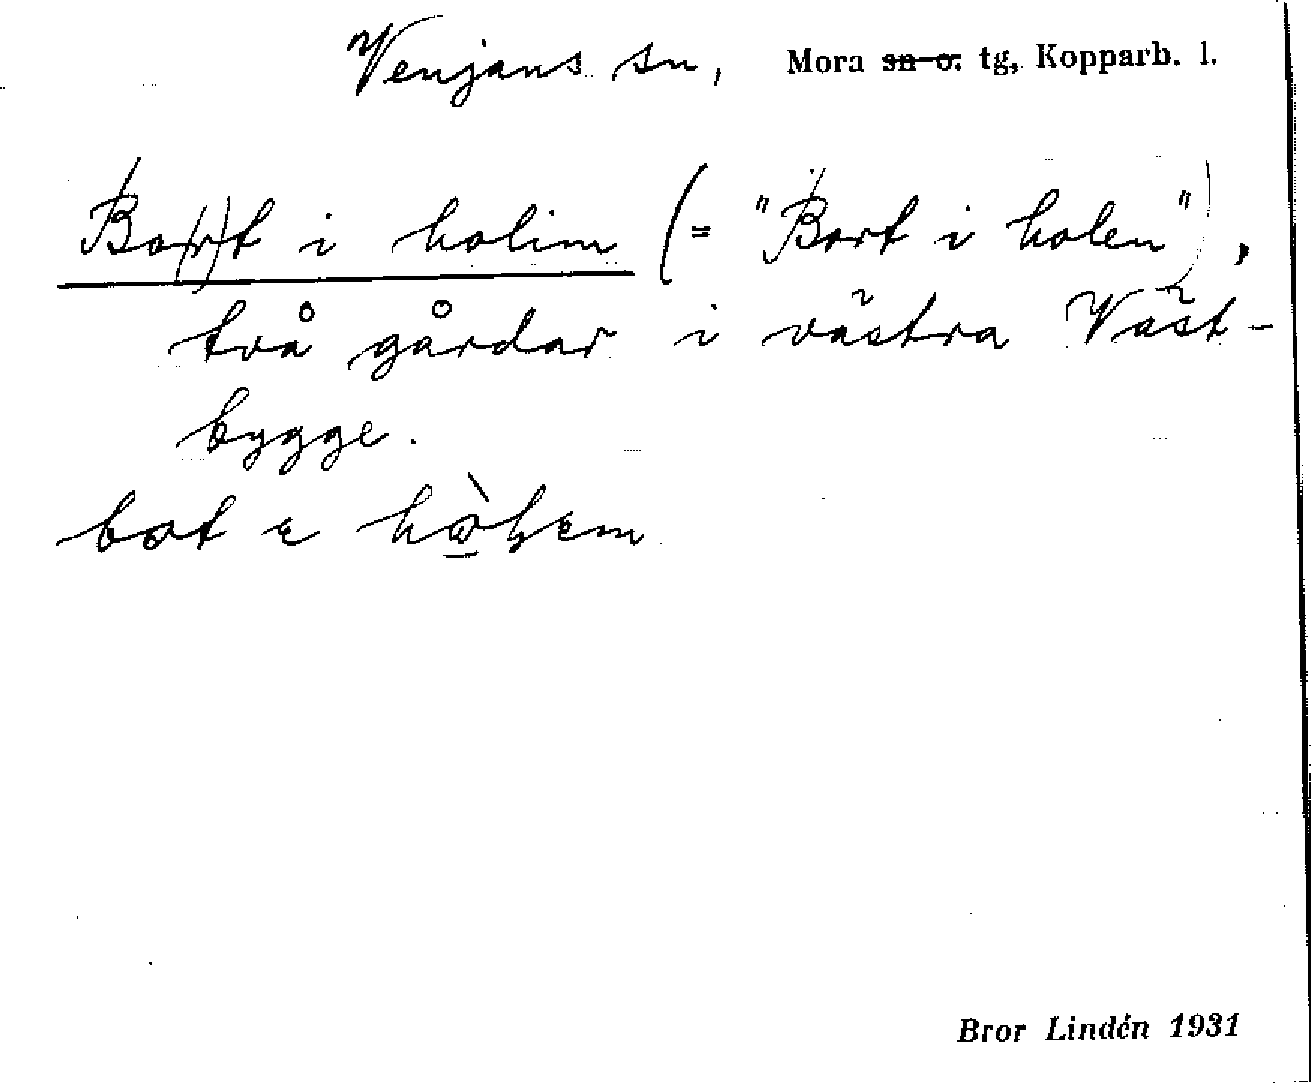 Venjans sn, Mora sn o. tg, Kopparb. l.
Bo(r)t i holim (= "Bort i holen"),
två gårdar i västra Väst-
bygge.
bot
Bror Lindén 1931